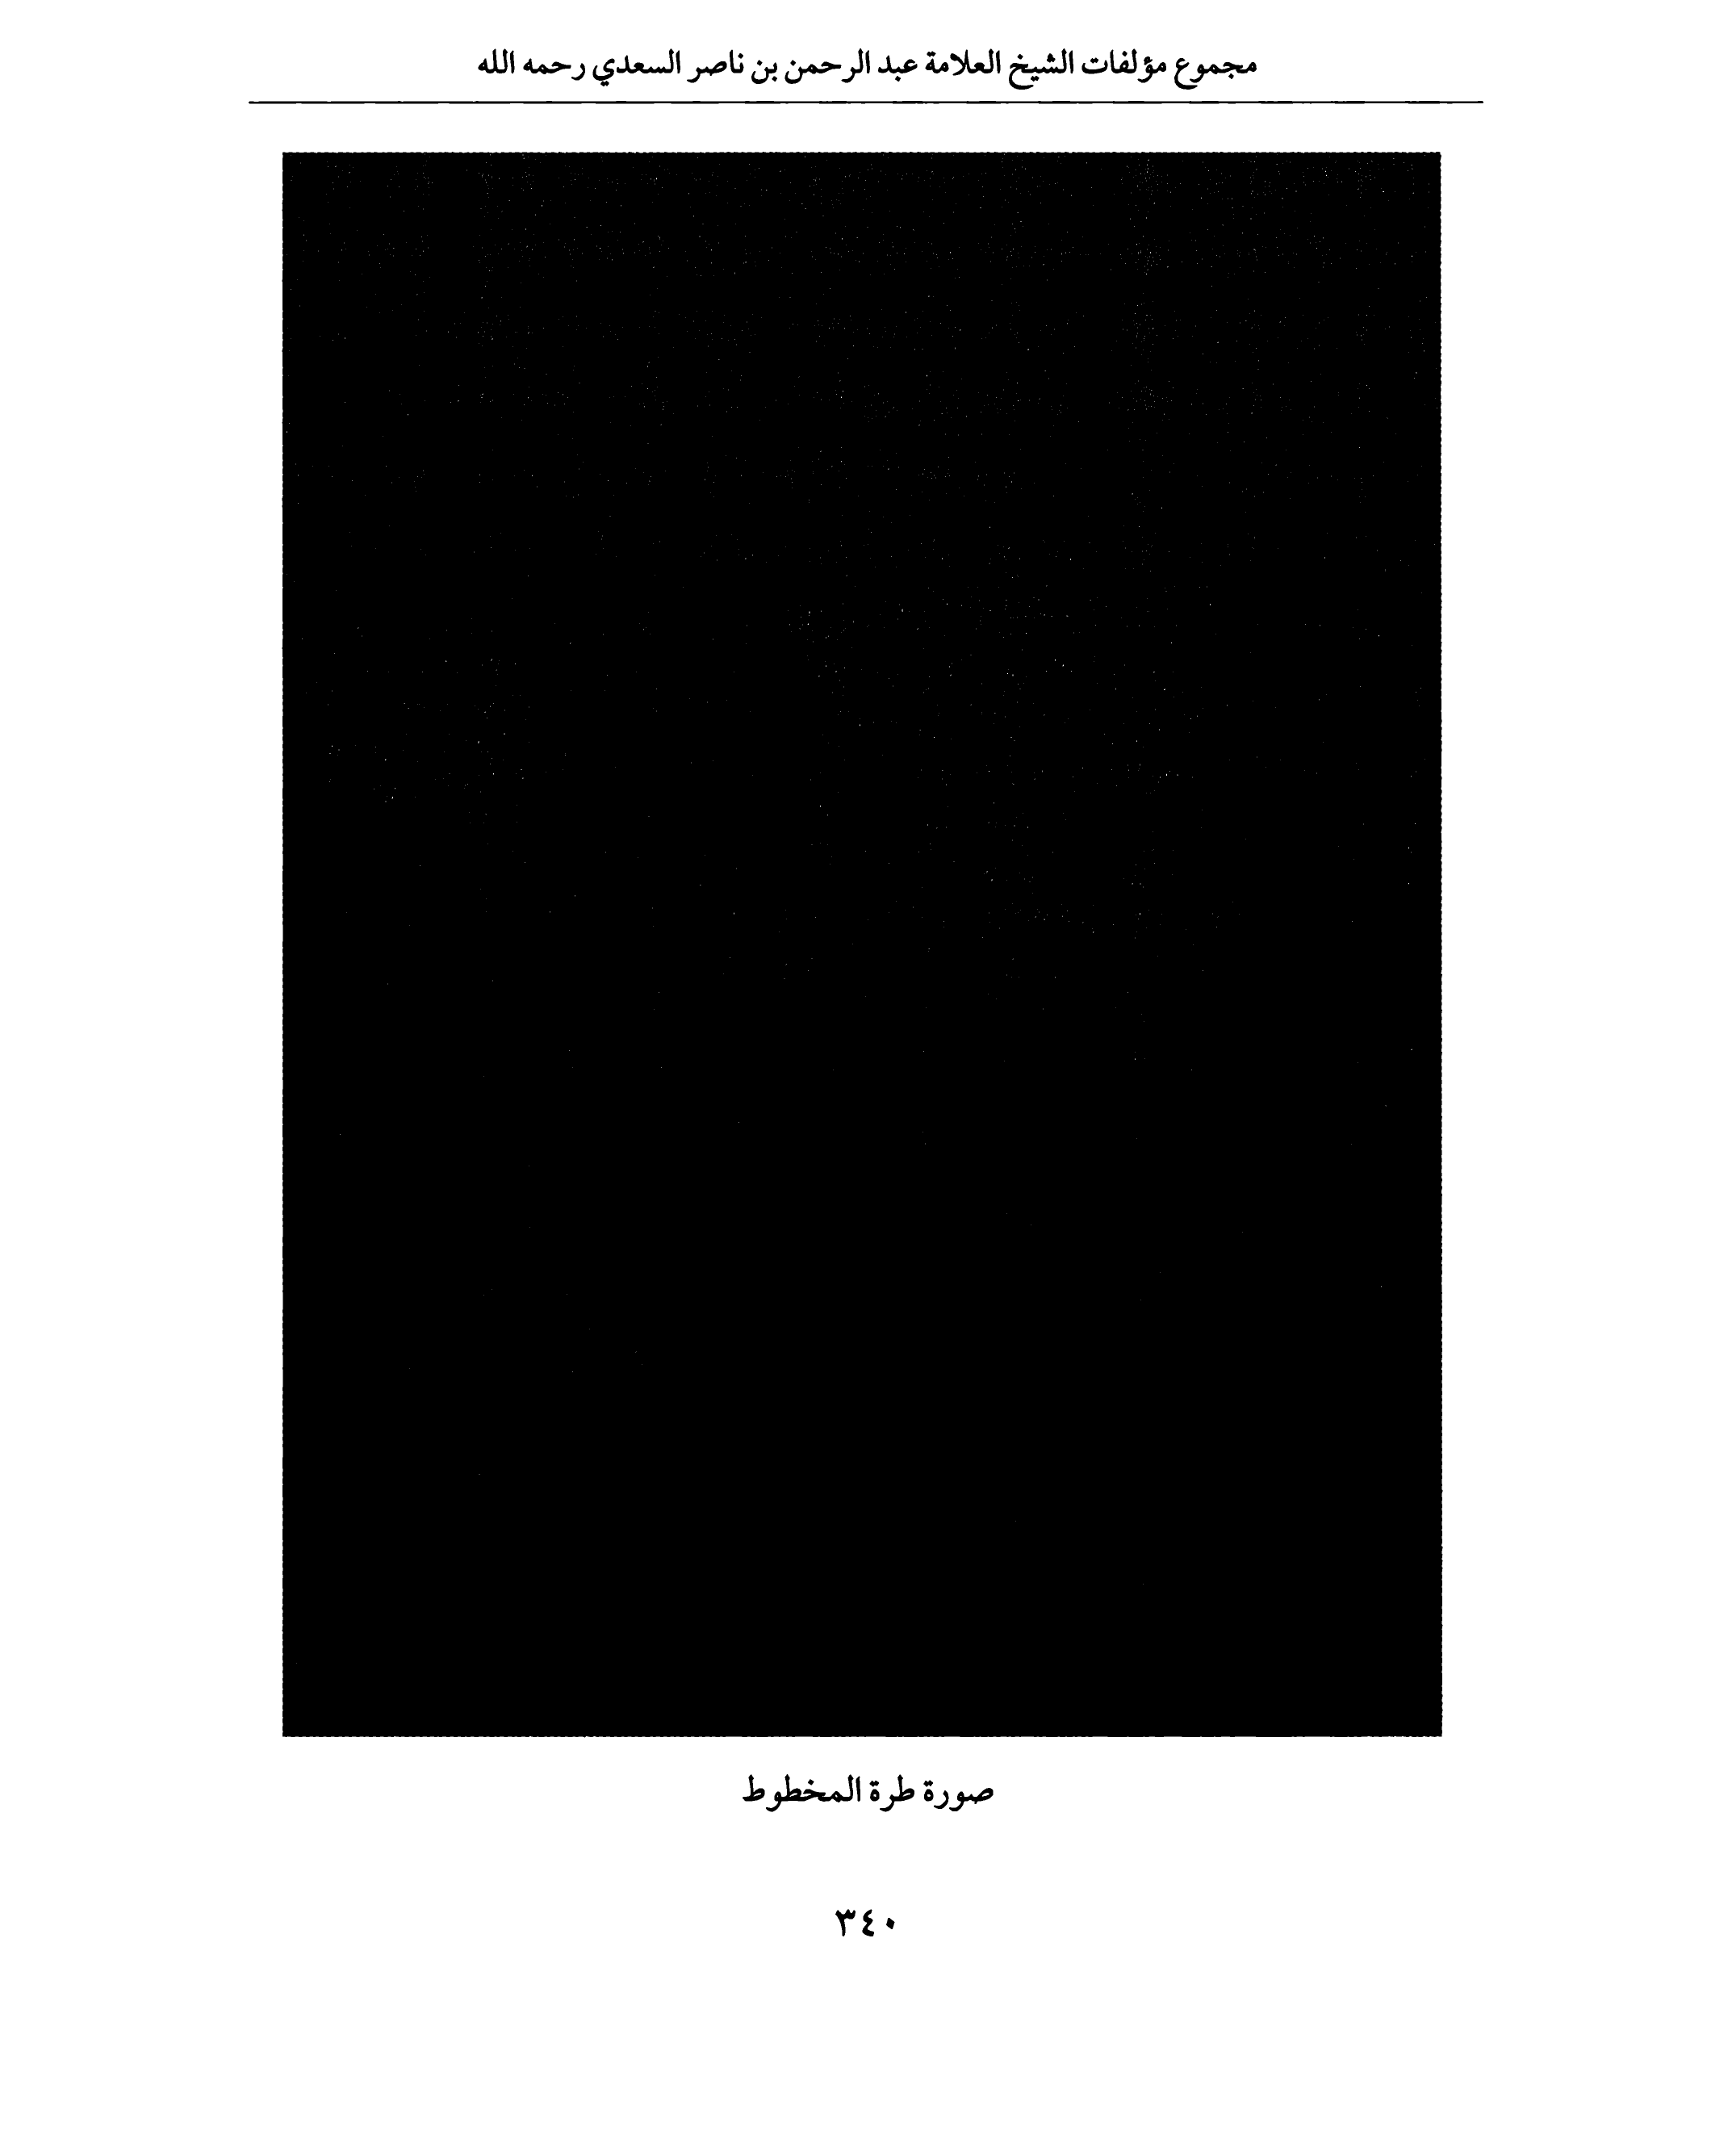 مجموع مؤلفات الشيخ العلامة عبد الرحمن بن ناصر السعدي رحمه الله
صورة طرة المخطوط
٣٤٠